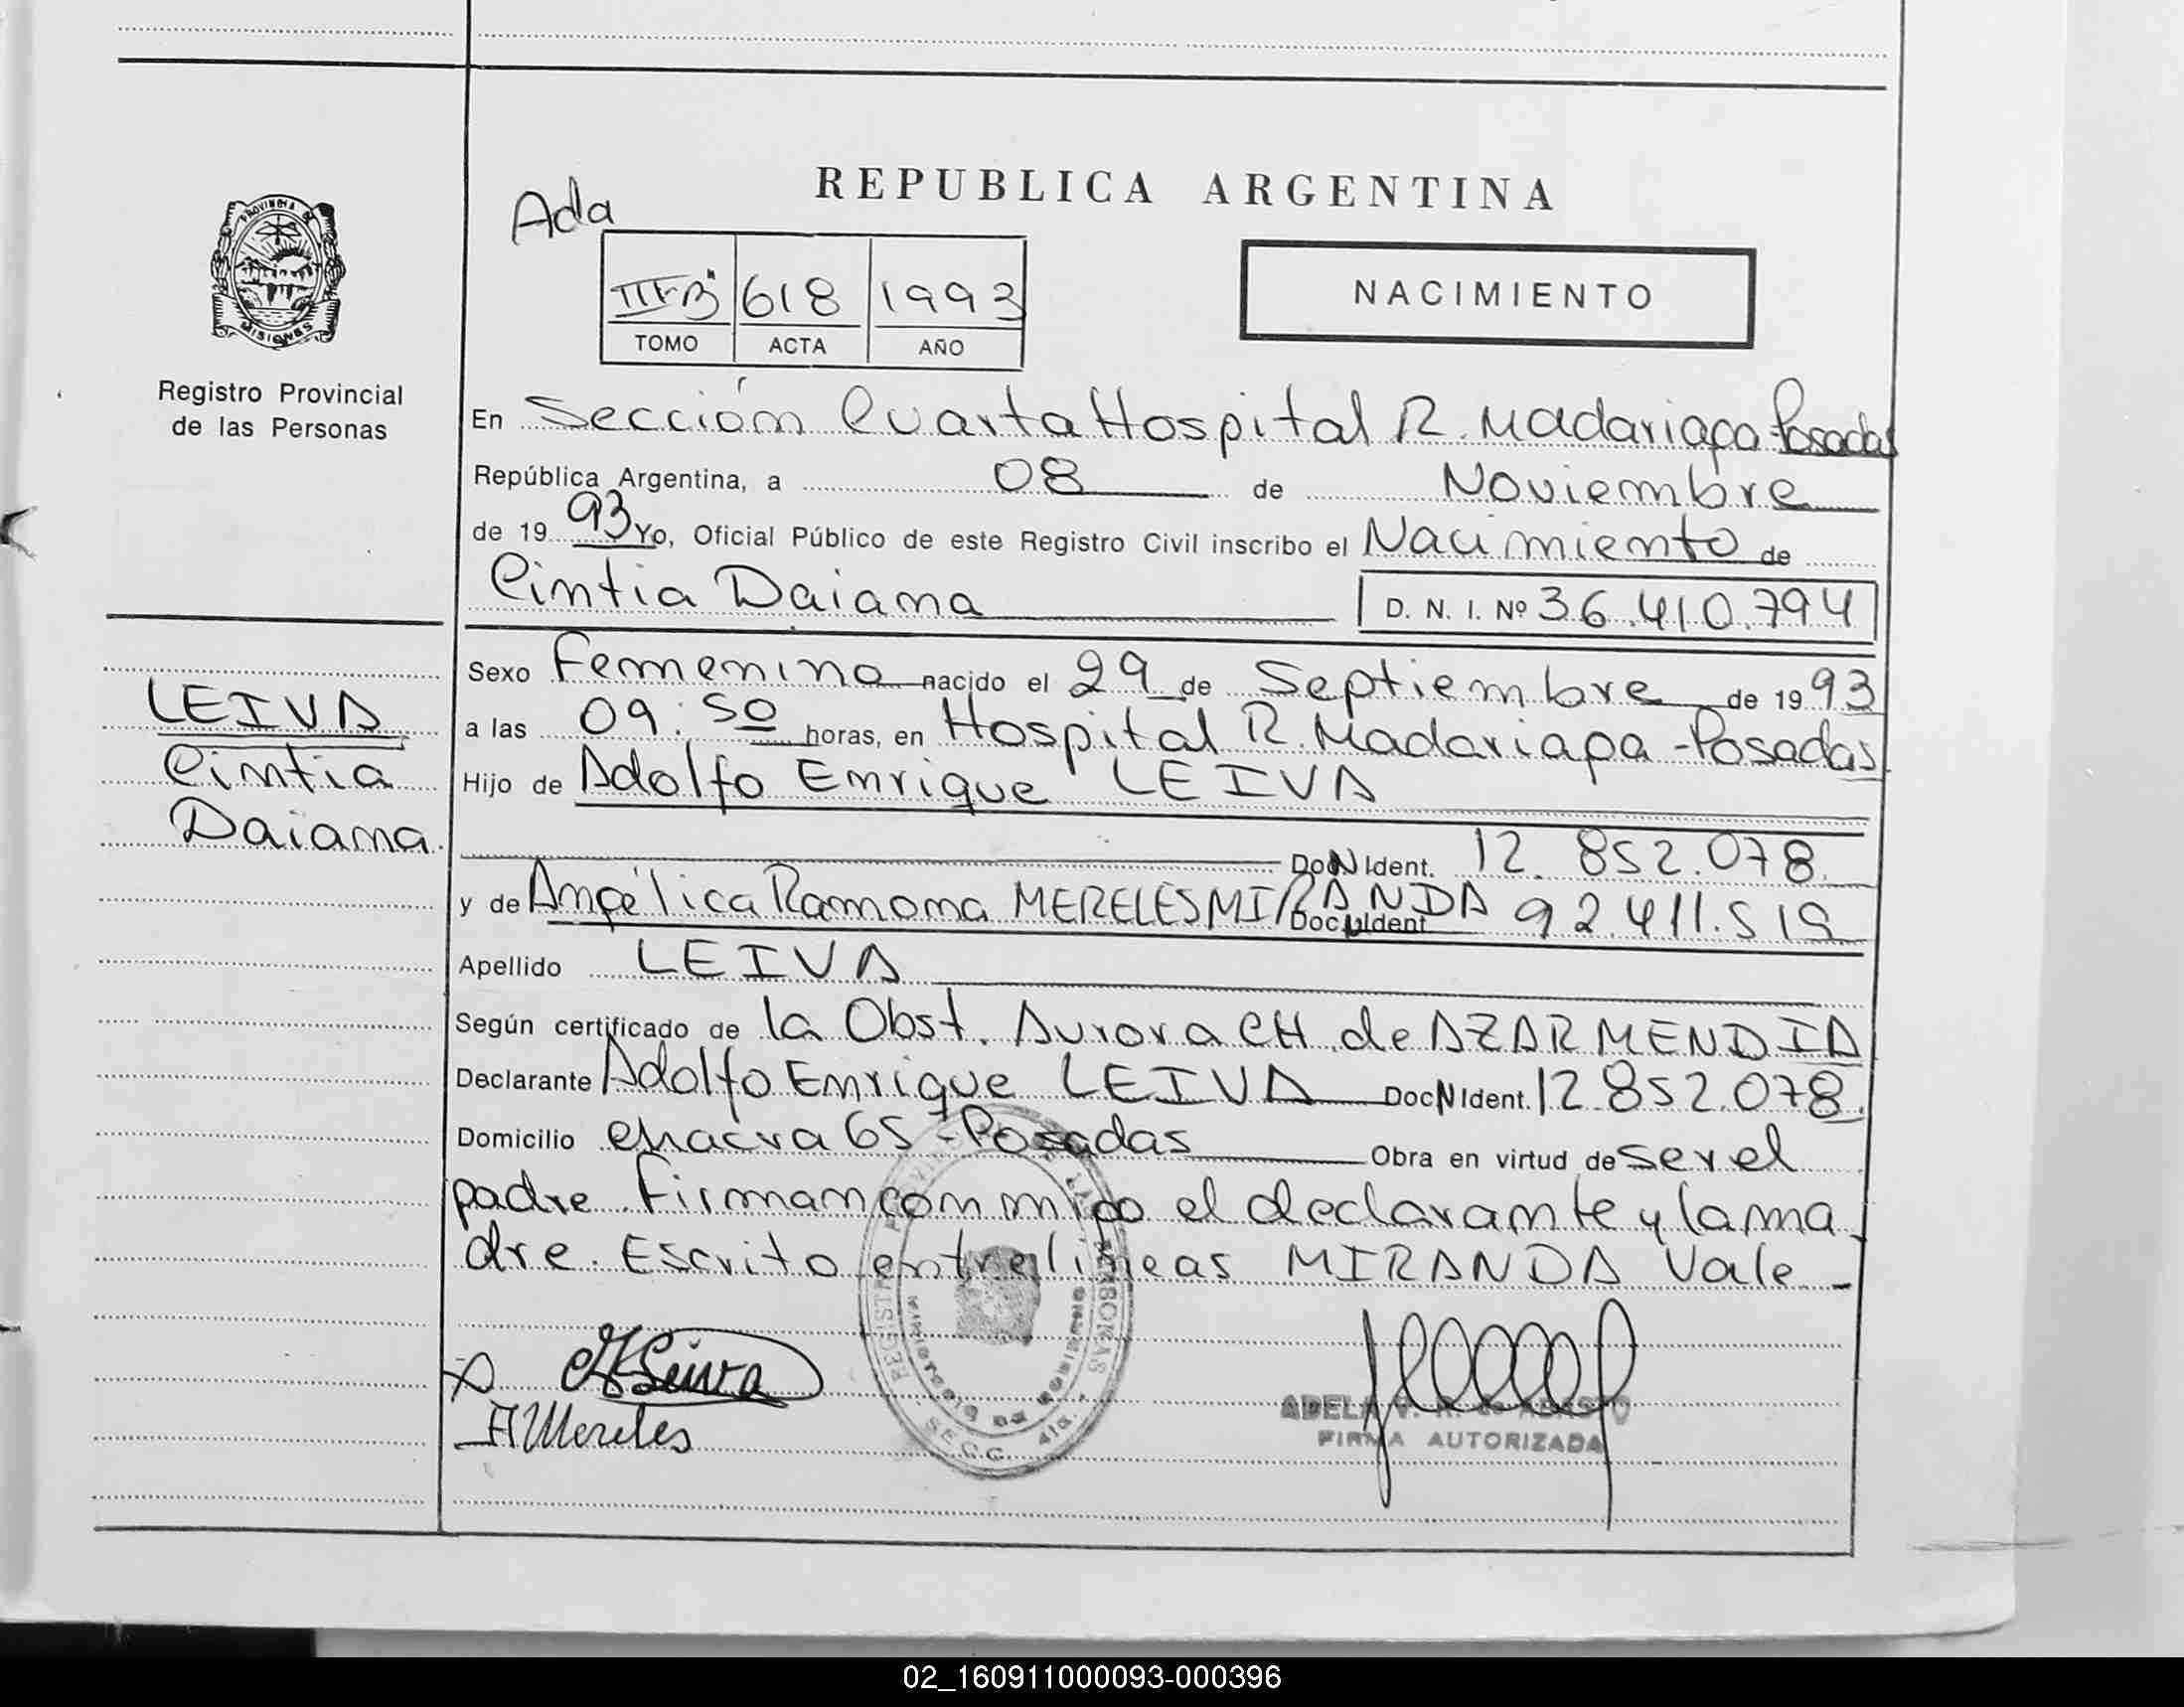 REPUBLICA ARGENTINA
Ada
PROVINCIA DE
MISIONES
Registro Provincial
de las Personas
618 1993
TOMO ACTA AÑO
NACIMIENTO
En Sección Cuarta Hospital R. Madariaga Posadas
República Argentina, a 08 de Noviembre
de 1993 Yo, Oficial Público de este Registro Civil inscribo el Nacimiento de
Cintia Daiana D. N. I. Nº 36.410.794
LEIVA
Cintia
Daiana.
Sexo Femenino nacido el 29 de Septiembre de 1993
a las 09:50 horas, en Hospital R. Madariaga - Posadas.
Hijo de Adolfo Enrique LEIVA
Doc N Ident. 12.852.078.
y de Angélica Ramona MERELES MIRANDA Doc N Ident 92.411.519
Apellido LEIVA
Según certificado de la Obst. Aurora CH. de AZARMENDIA
Declarante Adolfo Enrique LEIVA Doc N Ident. 12.852.078.
Domicilio chacra 65 - Posadas Obra en virtud de ser el
padre. Firman conmigo el declarante y la ma
dre. Escrito entrelíneas MIRANDA Vale -
Leiva
A Mereles
ADELA
FIRMA AUTORIZADA
02_160911000093-000396